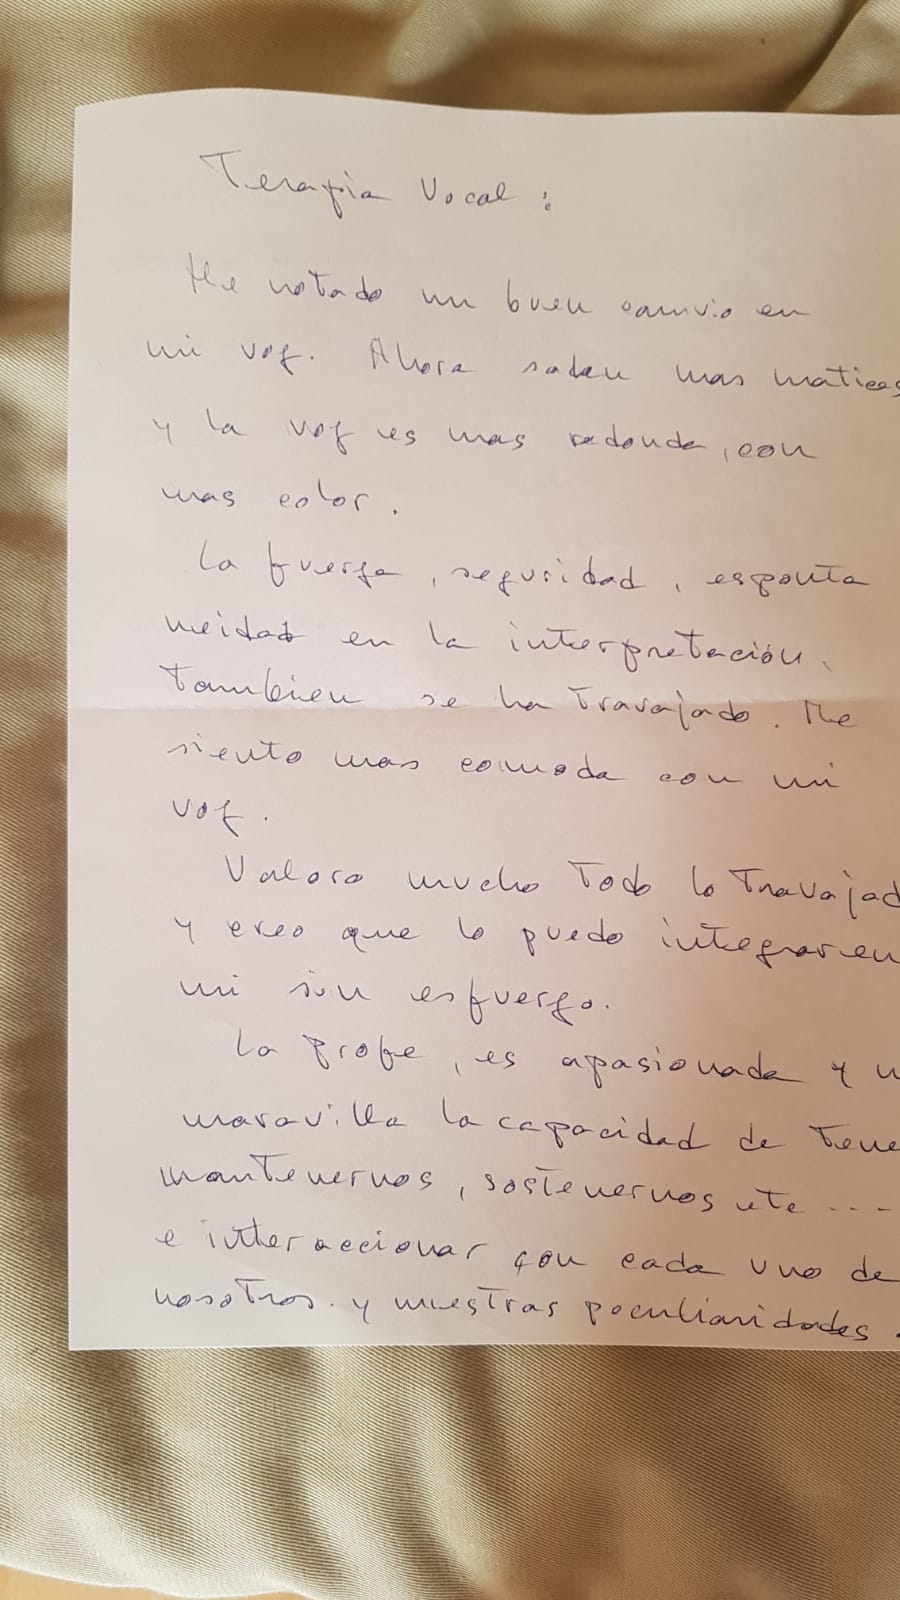 Terapia Vocal:
He notado un buen camvio en
mi voz. Ahora salen mas matices
y la voz es mas redonda, con
mas color.
La fuerza, seguridad, esponta
neidad en la interpretación.
Tambien se ha travajado. Me
siento mas comoda con mi
voz.
Valoro mucho Todo lo Travajad
y creo que lo puedo integrar en
mi sin esfuerzo.
La profe, es apasionada y
maravilla la capacidad de Tene
mantenernos, sostenernos etc ----
e interaccionar con cada uno de
nosotros. y nuestras peculiaridades.